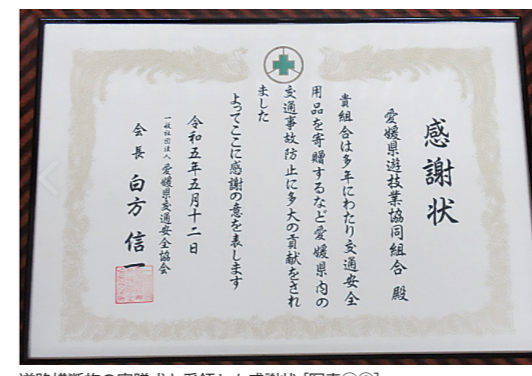 感謝状
愛媛県遊技業協同組合 殿
貴組合は多年にわたり交通安全
用品を寄贈するなど愛媛県内の
交通事故防止に多大の貢献をされ
ました
よってここに感謝の意を表します
令和五年五月十二日
一般社団法人 愛媛県交通安全協会
会長 白方信一